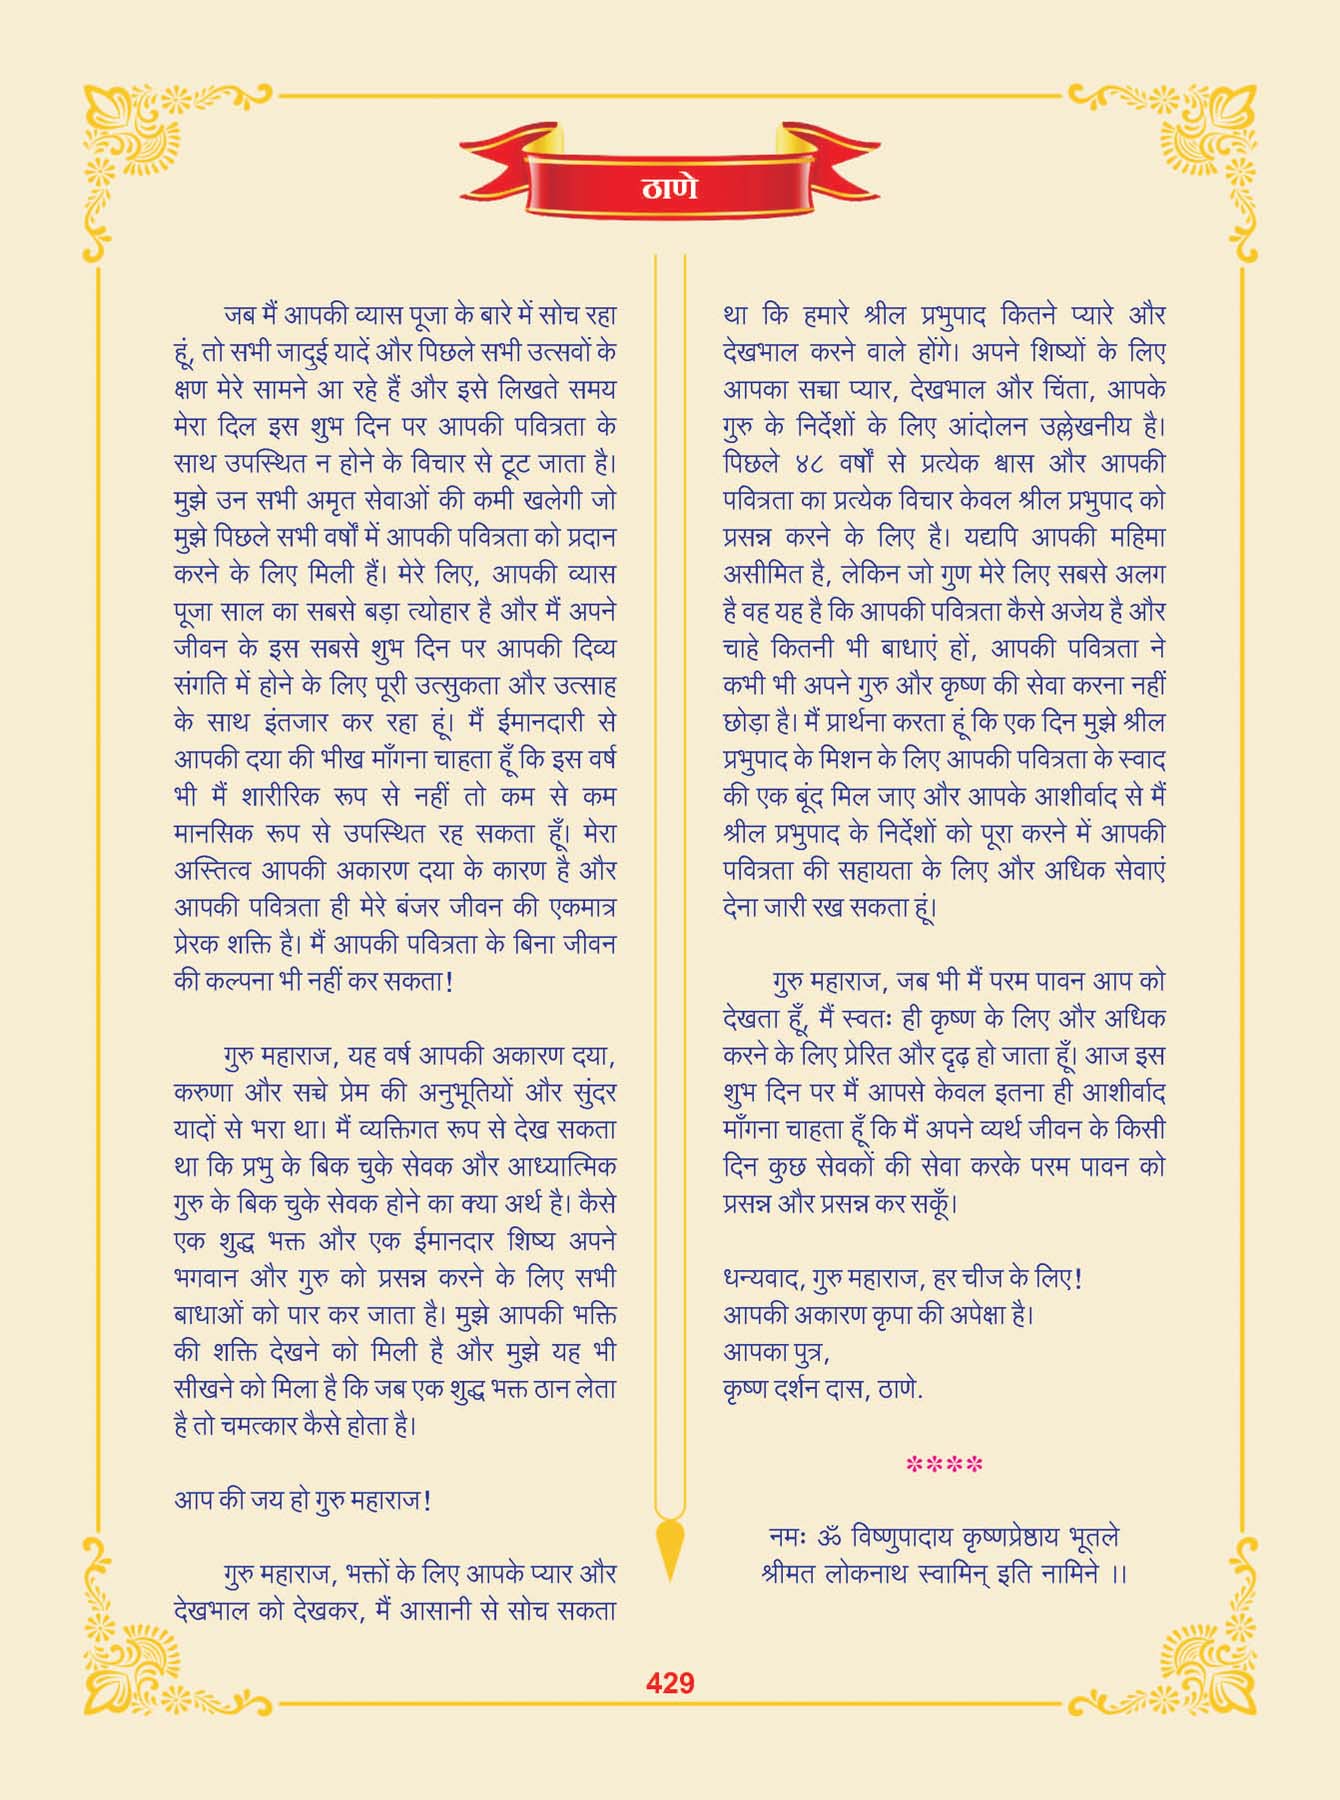 ठाणे
जब मैं आपकी व्यास पूजा के बारे में सोच रहा
हूं, तो सभी जादुई यादें और पिछले सभी उत्सवों के
क्षण मेरे सामने आ रहे हैं और इसे लिखते समय
मेरा दिल इस शुभ दिन पर आपकी पवित्रता के
साथ उपस्थित न होने के विचार से टूट जाता है।
मुझे उन सभी अमृत सेवाओं की कमी खलेगी जो
मुझे पिछले सभी वर्षों में आपकी पवित्रता को प्रदान
करने के लिए मिली हैं। मेरे लिए, आपकी व्यास
पूजा साल का सबसे बड़ा त्योहार है और मैं अपने
जीवन के इस सबसे शुभ दिन पर आपकी दिव्य
संगति में होने के लिए पूरी उत्सुकता और उत्साह
के साथ इंतजार कर रहा हूं। मैं ईमानदारी से
आपकी दया की भीख माँगना चाहता हूँ कि इस वर्ष
भी मैं शारीरिक रूप से नहीं तो कम से कम
मानसिक रूप से उपस्थित रह सकता हूँ। मेरा
अस्तित्व आपकी अकारण दया के कारण है और
आपकी पवित्रता ही मेरे बंजर जीवन की एकमात्र
प्रेरक शक्ति है। मैं आपकी पवित्रता के बिना जीवन
की कल्पना भी नहीं कर सकता!
गुरु महाराज, यह वर्ष आपकी अकारण दया,
करुणा और सच्चे प्रेम की अनुभूतियों और सुंदर
यादों से भरा था। मैं व्यक्तिगत रूप से देख सकता
था कि प्रभु के बिक चुके सेवक और आध्यात्मिक
गुरु के बिक चुके सेवक होने का क्या अर्थ है। कैसे
एक शुद्ध भक्त और एक ईमानदार शिष्य अपने
भगवान और गुरु को प्रसन्न करने के लिए सभी
बाधाओं को पार कर जाता है। मुझे आपकी भक्ति
की शक्ति देखने को मिली है और मुझे यह भी
सीखने को मिला है कि जब एक शुद्ध भक्त ठान लेता
है तो चमत्कार कैसे होता है।
आप की जय हो गुरु महाराज!
गुरु महाराज, भक्तों के लिए आपके प्यार और
देखभाल को देखकर, मैं आसानी से सोच सकता
था कि हमारे श्रील प्रभुपाद कितने प्यारे और
देखभाल करने वाले होंगे। अपने शिष्यों के लिए
आपका सच्चा प्यार, देखभाल और चिंता, आपके
गुरु के निर्देशों के लिए आंदोलन उल्लेखनीय है।
पिछले ४८ वर्षों से प्रत्येक श्वास और आपकी
पवित्रता का प्रत्येक विचार केवल श्रील प्रभुपाद को
प्रसन्न करने के लिए है। यद्यपि आपकी महिमा
असीमित है, लेकिन जो गुण मेरे लिए सबसे अलग
है वह यह है कि आपकी पवित्रता कैसे अजेय है और
चाहे कितनी भी बाधाएं हों, आपकी पवित्रता ने
कभी भी अपने गुरु और कृष्ण की सेवा करना नहीं
छोड़ा है। मैं प्रार्थना करता हूं कि एक दिन मुझे श्रील
प्रभुपाद के मिशन के लिए आपकी पवित्रता के स्वाद
की एक बूंद मिल जाए और आपके आशीर्वाद से मैं
श्रील प्रभुपाद के निर्देशों को पूरा करने में आपकी
पवित्रता की सहायता के लिए और अधिक सेवाएं
देना जारी रख सकता हूं।
गुरु महाराज, जब भी मैं परम पावन आप को
देखता हूँ, मैं स्वतः ही कृष्ण के लिए और अधिक
करने के लिए प्रेरित और दृढ़ हो जाता हूँ। आज इस
शुभ दिन पर मैं आपसे केवल इतना ही आशीर्वाद
माँगना चाहता हूँ कि मैं अपने व्यर्थ जीवन के किसी
दिन कुछ सेवकों की सेवा करके परम पावन को
प्रसन्न और प्रसन्न कर सकूँ।
धन्यवाद, गुरु महाराज, हर चीज के लिए!
आपकी अकारण कृपा की अपेक्षा है।
आपका पुत्र,
कृष्ण दर्शन दास, ठाणे.
****
नमः ॐ विष्णुपादाय कृष्णप्रेष्ठाय भूतले
श्रीमत लोकनाथ स्वामिन् इति नामिने ।।
429